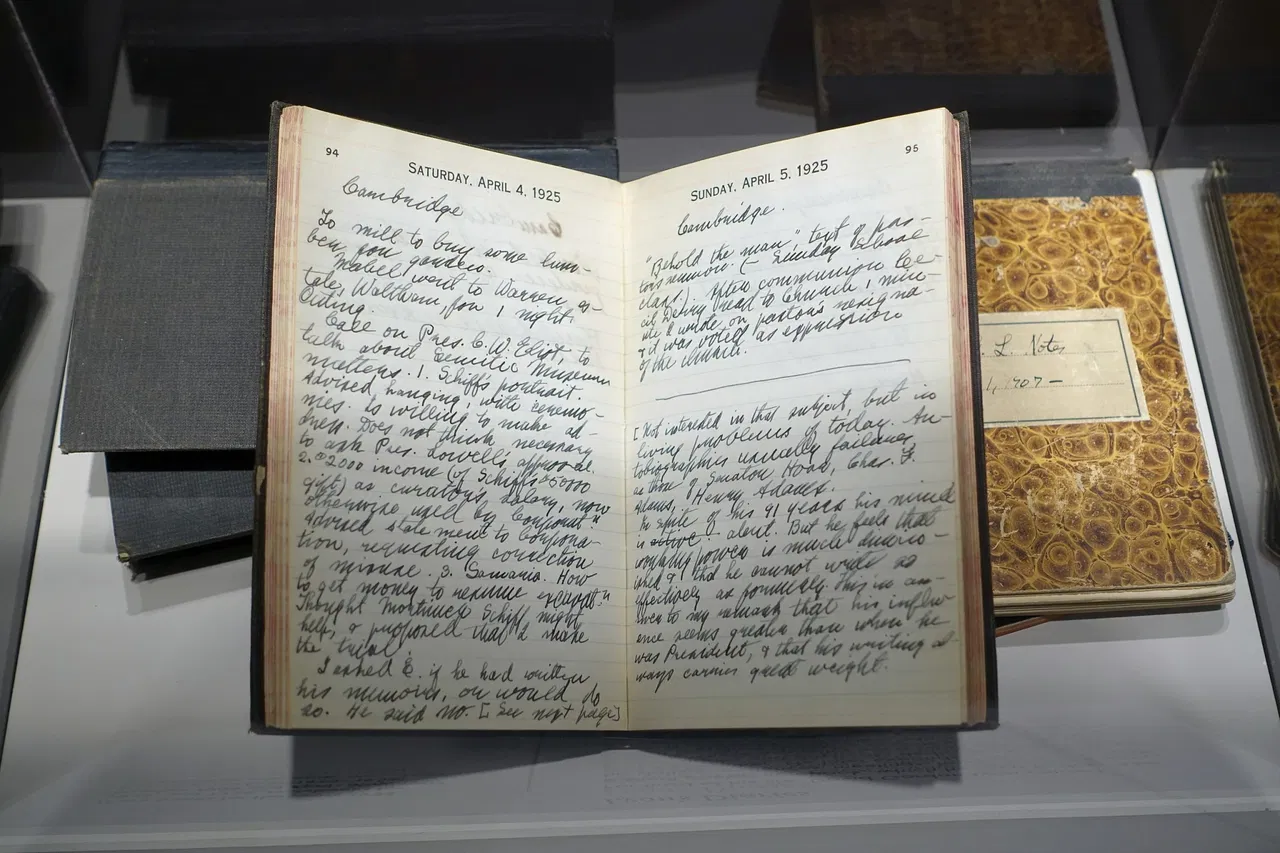 94
SATURDAY, APRIL 4, 1925
Cambridge
To mill to buy some lum-
ber for garden.
Mabel ward to Warren es-
tate, Waltham, for 1 night
outing.
Call on Pres. C. W. Eliot to
talk about Semitic Museum
matters. 1. Schiff's portrait.
Advised hanging, with ceremo-
nies. Is willing to make ad-
dress. Does not think necessary
to ask Pres. Lowell's approval.
2. $2000 income (of Schiff's $50000
gift) as curator's salary, now
otherwise used by Corporat'n
Advised statement to Corpora-
tion, requesting correction
of misuse. 3. Samaria. How
to get money to resume excavat'n
Thought Mortimer Schiff might
help, & proposed that I make
the trial.
I asked E. if he had written
his memoirs, or would do
so. He said no. [See next page]
95
SUNDAY, APRIL 5, 1925
Cambridge.
"Behold the man", text of pas-
tor's sermon. (- Sunday School
class). After communion Ce-
cil Derry read to Church 1 min-
ute I wrote on pastor's resigna-
& it was voted as expression
of the church.
[Not interested in that subject, but in
living problems of today. Au-
tobiographies usually failures,
as those of Senator Hoar, Chas. F.
Adams, Henry Adams.
In spite of his 91 years his mind
is active & alert. But he feels that
power is much dimin-
ished & that he cannot write as
effectively as formerly. This in an-
swer to my remark that his influ-
ence seems greater than when he
was President, & that his writing al-
ways carries great weight.
L. Notes
1, 1907 –